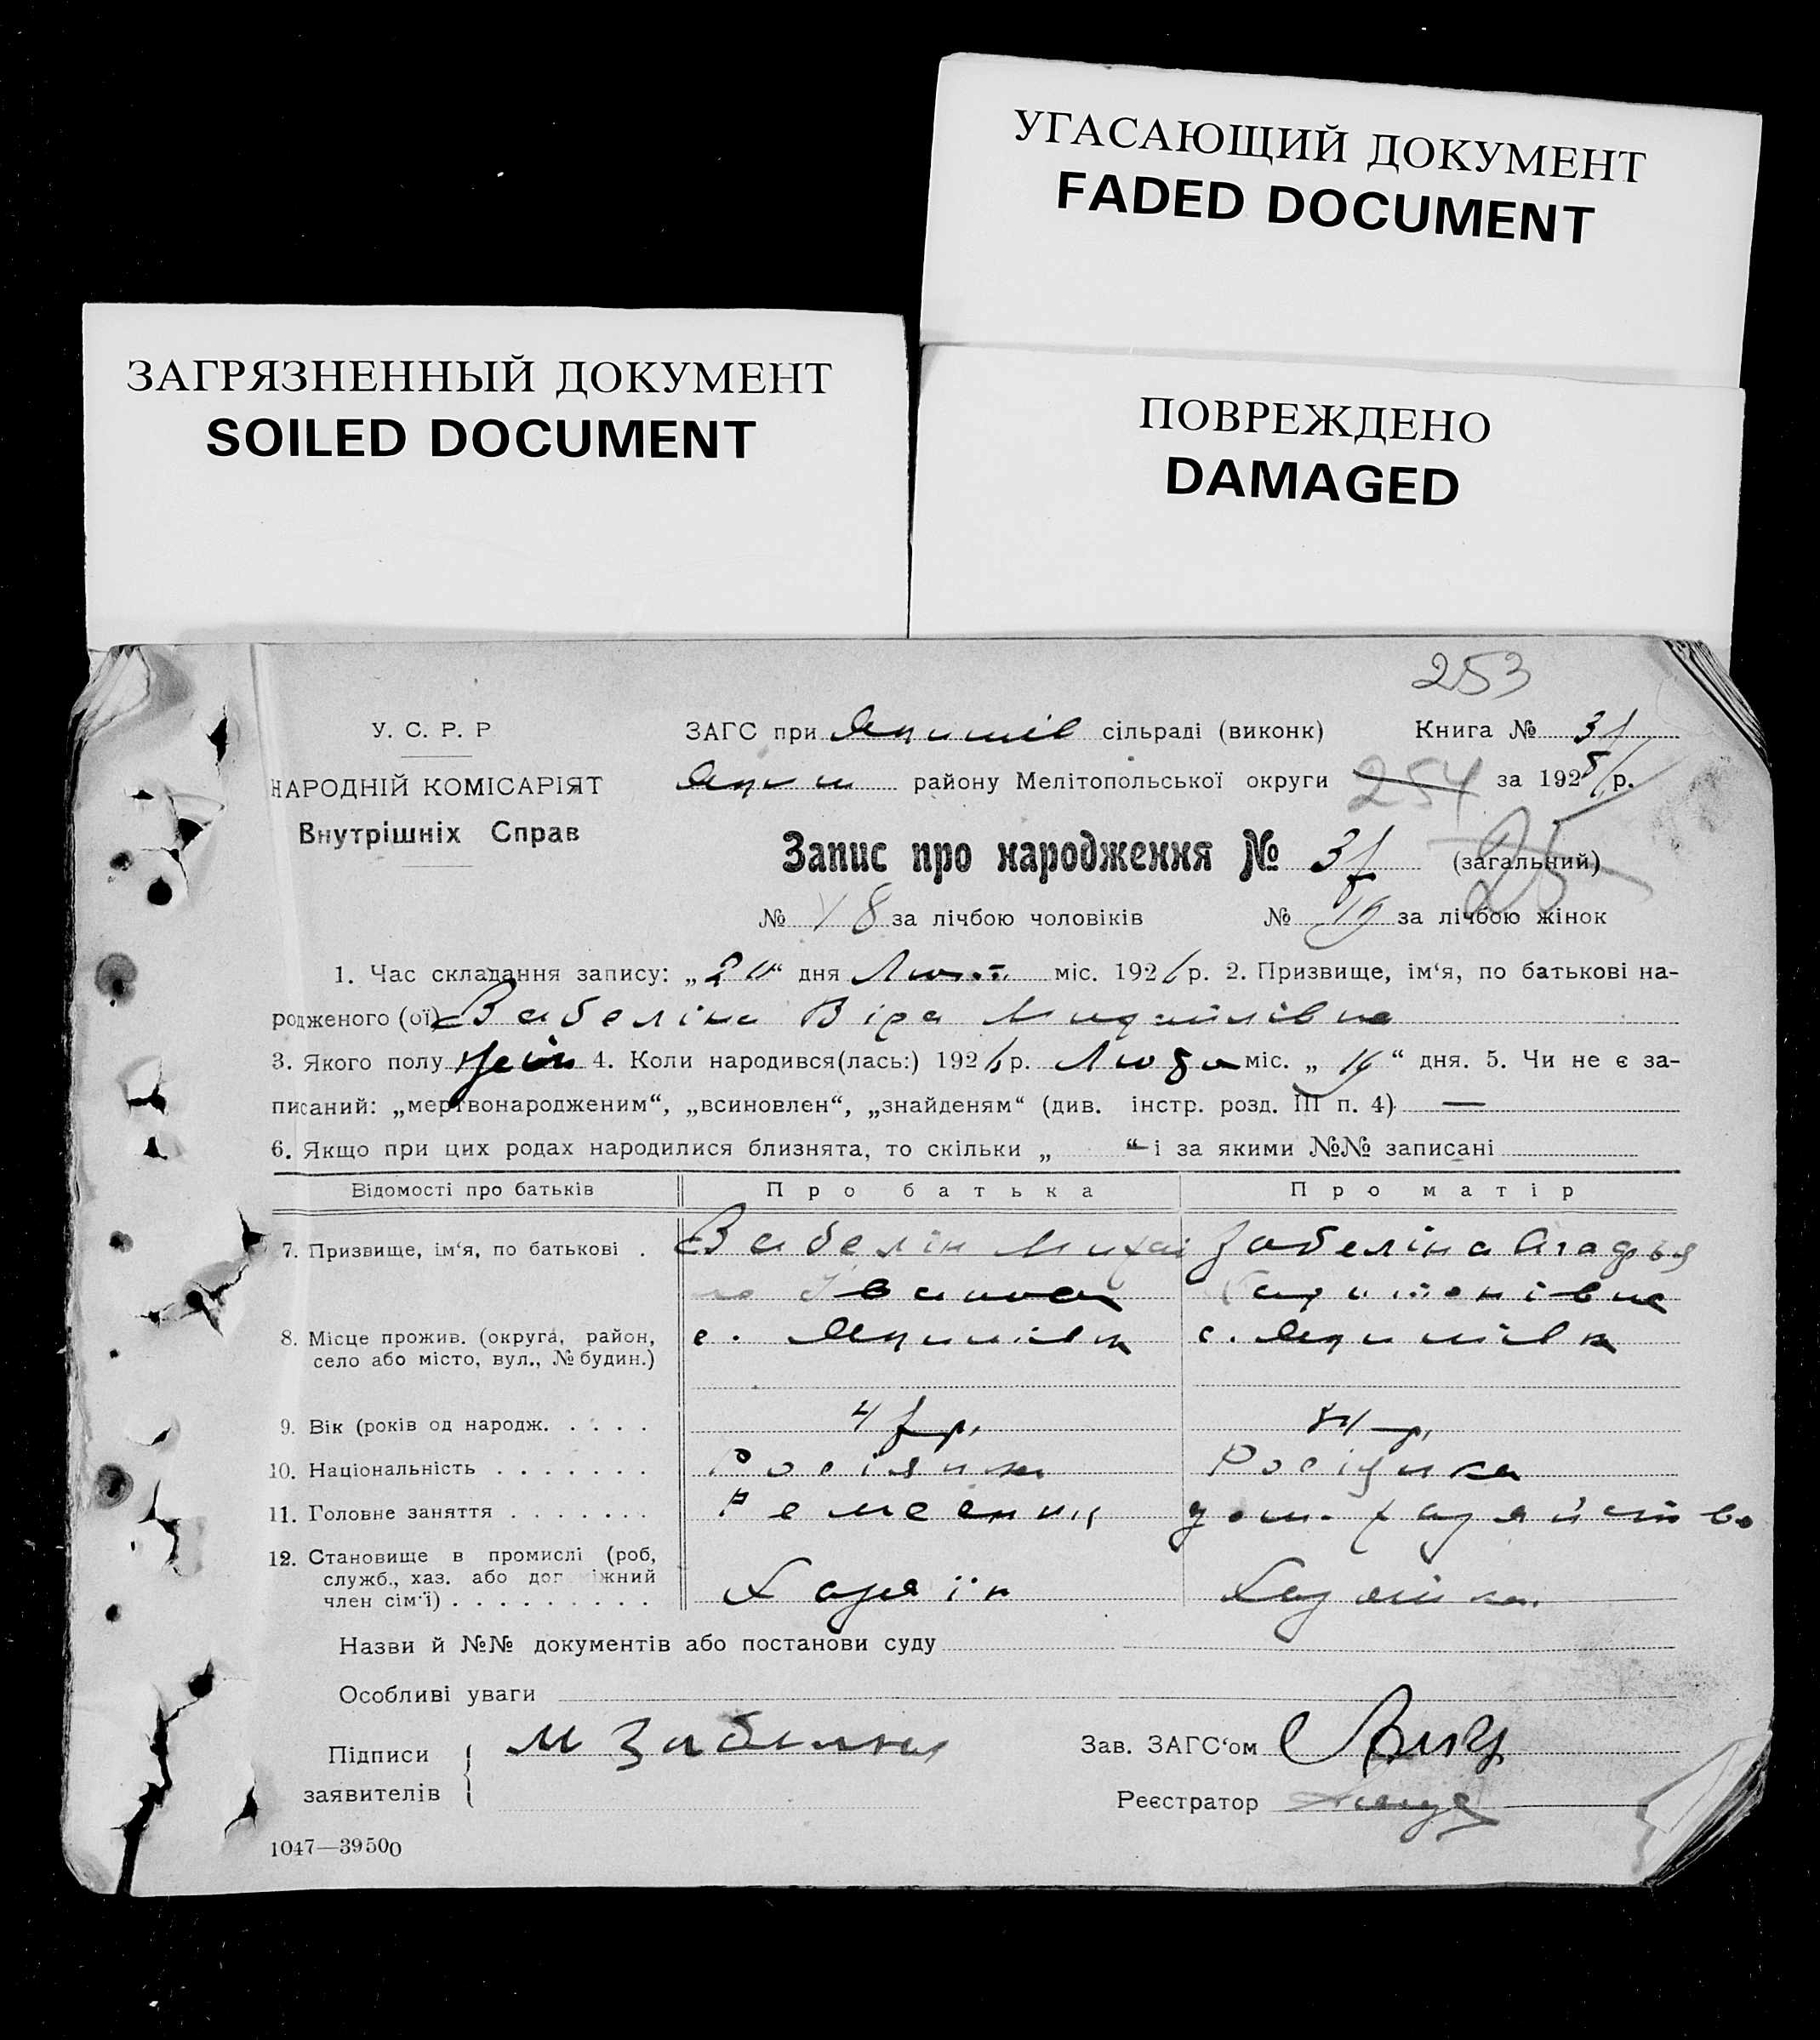 УГАСАЮЩИЙ ДОКУМЕНТ
FADED DOCUMENT
ЗАГРЯЗНЕННЫЙ ДОКУМЕНТ
SOILED DOCUMENT
ПОВРЕЖДЕНО
DAMAGED
253
У. С. Р. Р
НАРОДНІЙ КОМІСАРІЯТ
Внутрішніх Справ
ЗАГС при сільраді (виконк) Книга №
району Мелітопольської округи 254 за 192 р.
Запис про народження № (загальний)
№ 18 за лічбою чоловіків № 19 за лічбою жінок
1. Час складання запису: „ “ дня міс. 1926 р. 2. Призвище, ім‘я, по батькові на-
родженого (ої) Забеліна Віра Михайлівна
3. Якого полу жін 4. Коли народився(лась:) 1926 р. міс. „ “ дня. 5. Чи не є за-
писаний: „мертвонародженим“, „всиновлен“, „знайденям“ (див. інстр. розд. III п. 4) —
6. Якщо при цих родах народилися близнята, то скільки „ “ і за якими №№ записані
Відомості про батьків Про батька Про матір
7. Призвище, ім‘я, по батькові . Забелін Михаі Забеліна Агафья
ло Іванов Харитонівна
8. Місце прожив. (округа, район, с. Якимівка с. Якимівка
село або місто, вул., № будин.)
9. Вік (років од народж. . . . . р. р.
10. Національність . . . . . . . Росіянин Росіянка
11. Головне заняття . . . . . . . Ремесник дом. хазяйство
12. Становище в промислі (роб,
служб., хаз. або доп іжний
член сім‘ї) . . . . . . . . . Хазяїн Хазяйка
Назви й №№ документів або постанови суду
Особливі уваги
Підписи заявителів М Забелин
Зав. ЗАГС‘ом
Реєстратор
1047—39500